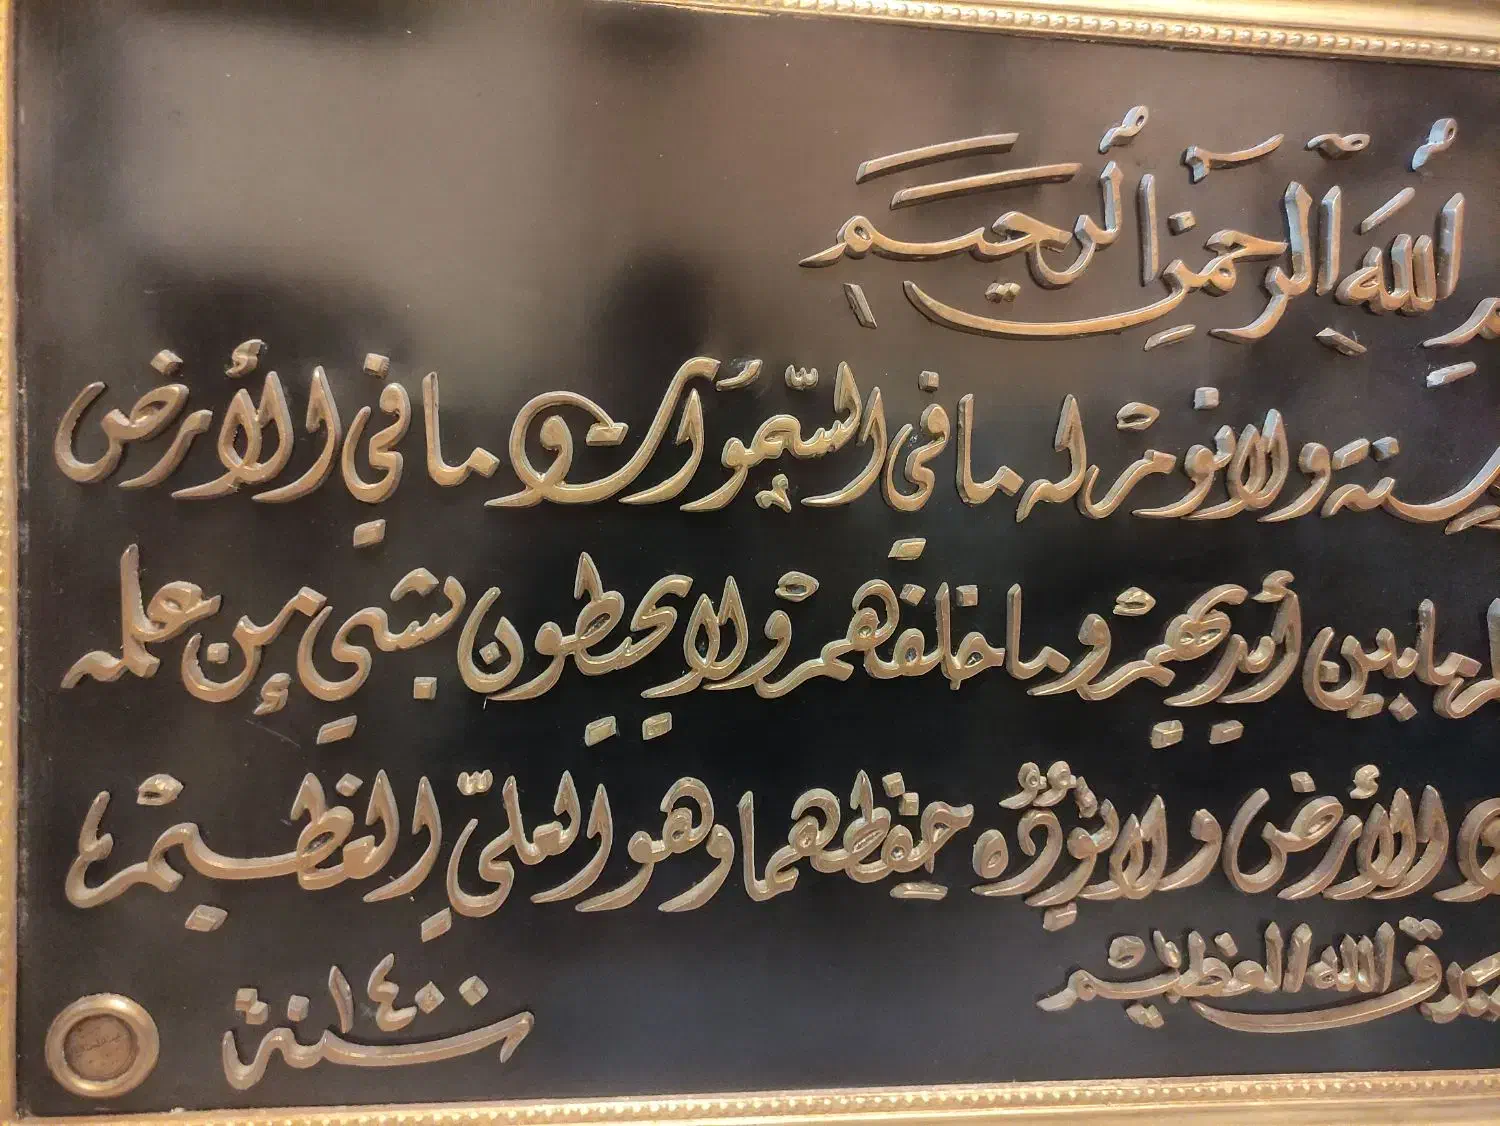 الله الرحمن الرحيم
سنة ولا نوم له ما في السموات وما في الأرض
ما بين أيديهم وما خلفهم ولا يحيطون بشيء من علمه
والأرض ولا يؤده حفظهما وهو العلي العظيم
صدق الله العظيم
سنة ١٤٠٠